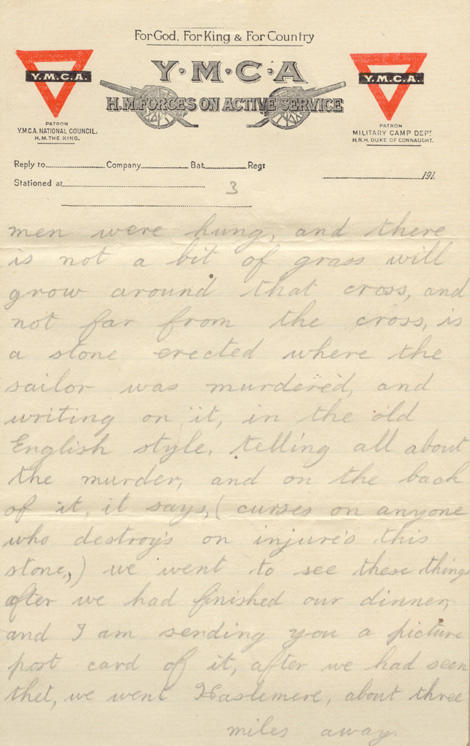 For God, For King & For Country
Y·M·C·A
H.M. FORCES ON ACTIVE SERVICE
Y.M.C.A.
PATRON
Y.M.C.A. NATIONAL COUNCIL.
H.M. THE KING.
Y.M.C.A.
PATRON
MILITARY CAMP DEPT
H.R.H. DUKE OF CONNAUGHT.
Reply to Company Bat. Regt
Stationed at 191
3
men were hung, and there
is not a bit of grass will
grow around that cross, and
not far from the cross, is
a stone erected where the
sailor was murdered, and
writing on it, in the old
English style, telling all about
the murder, and on the back
of it, it says, (curses on anyone
who destroy's on injure's this
stone,) we went to see these things
after we had finished our dinner,
and I am sending you a picture
post card of it, after we had seen
thet, we went Haslemere, about three
miles away.